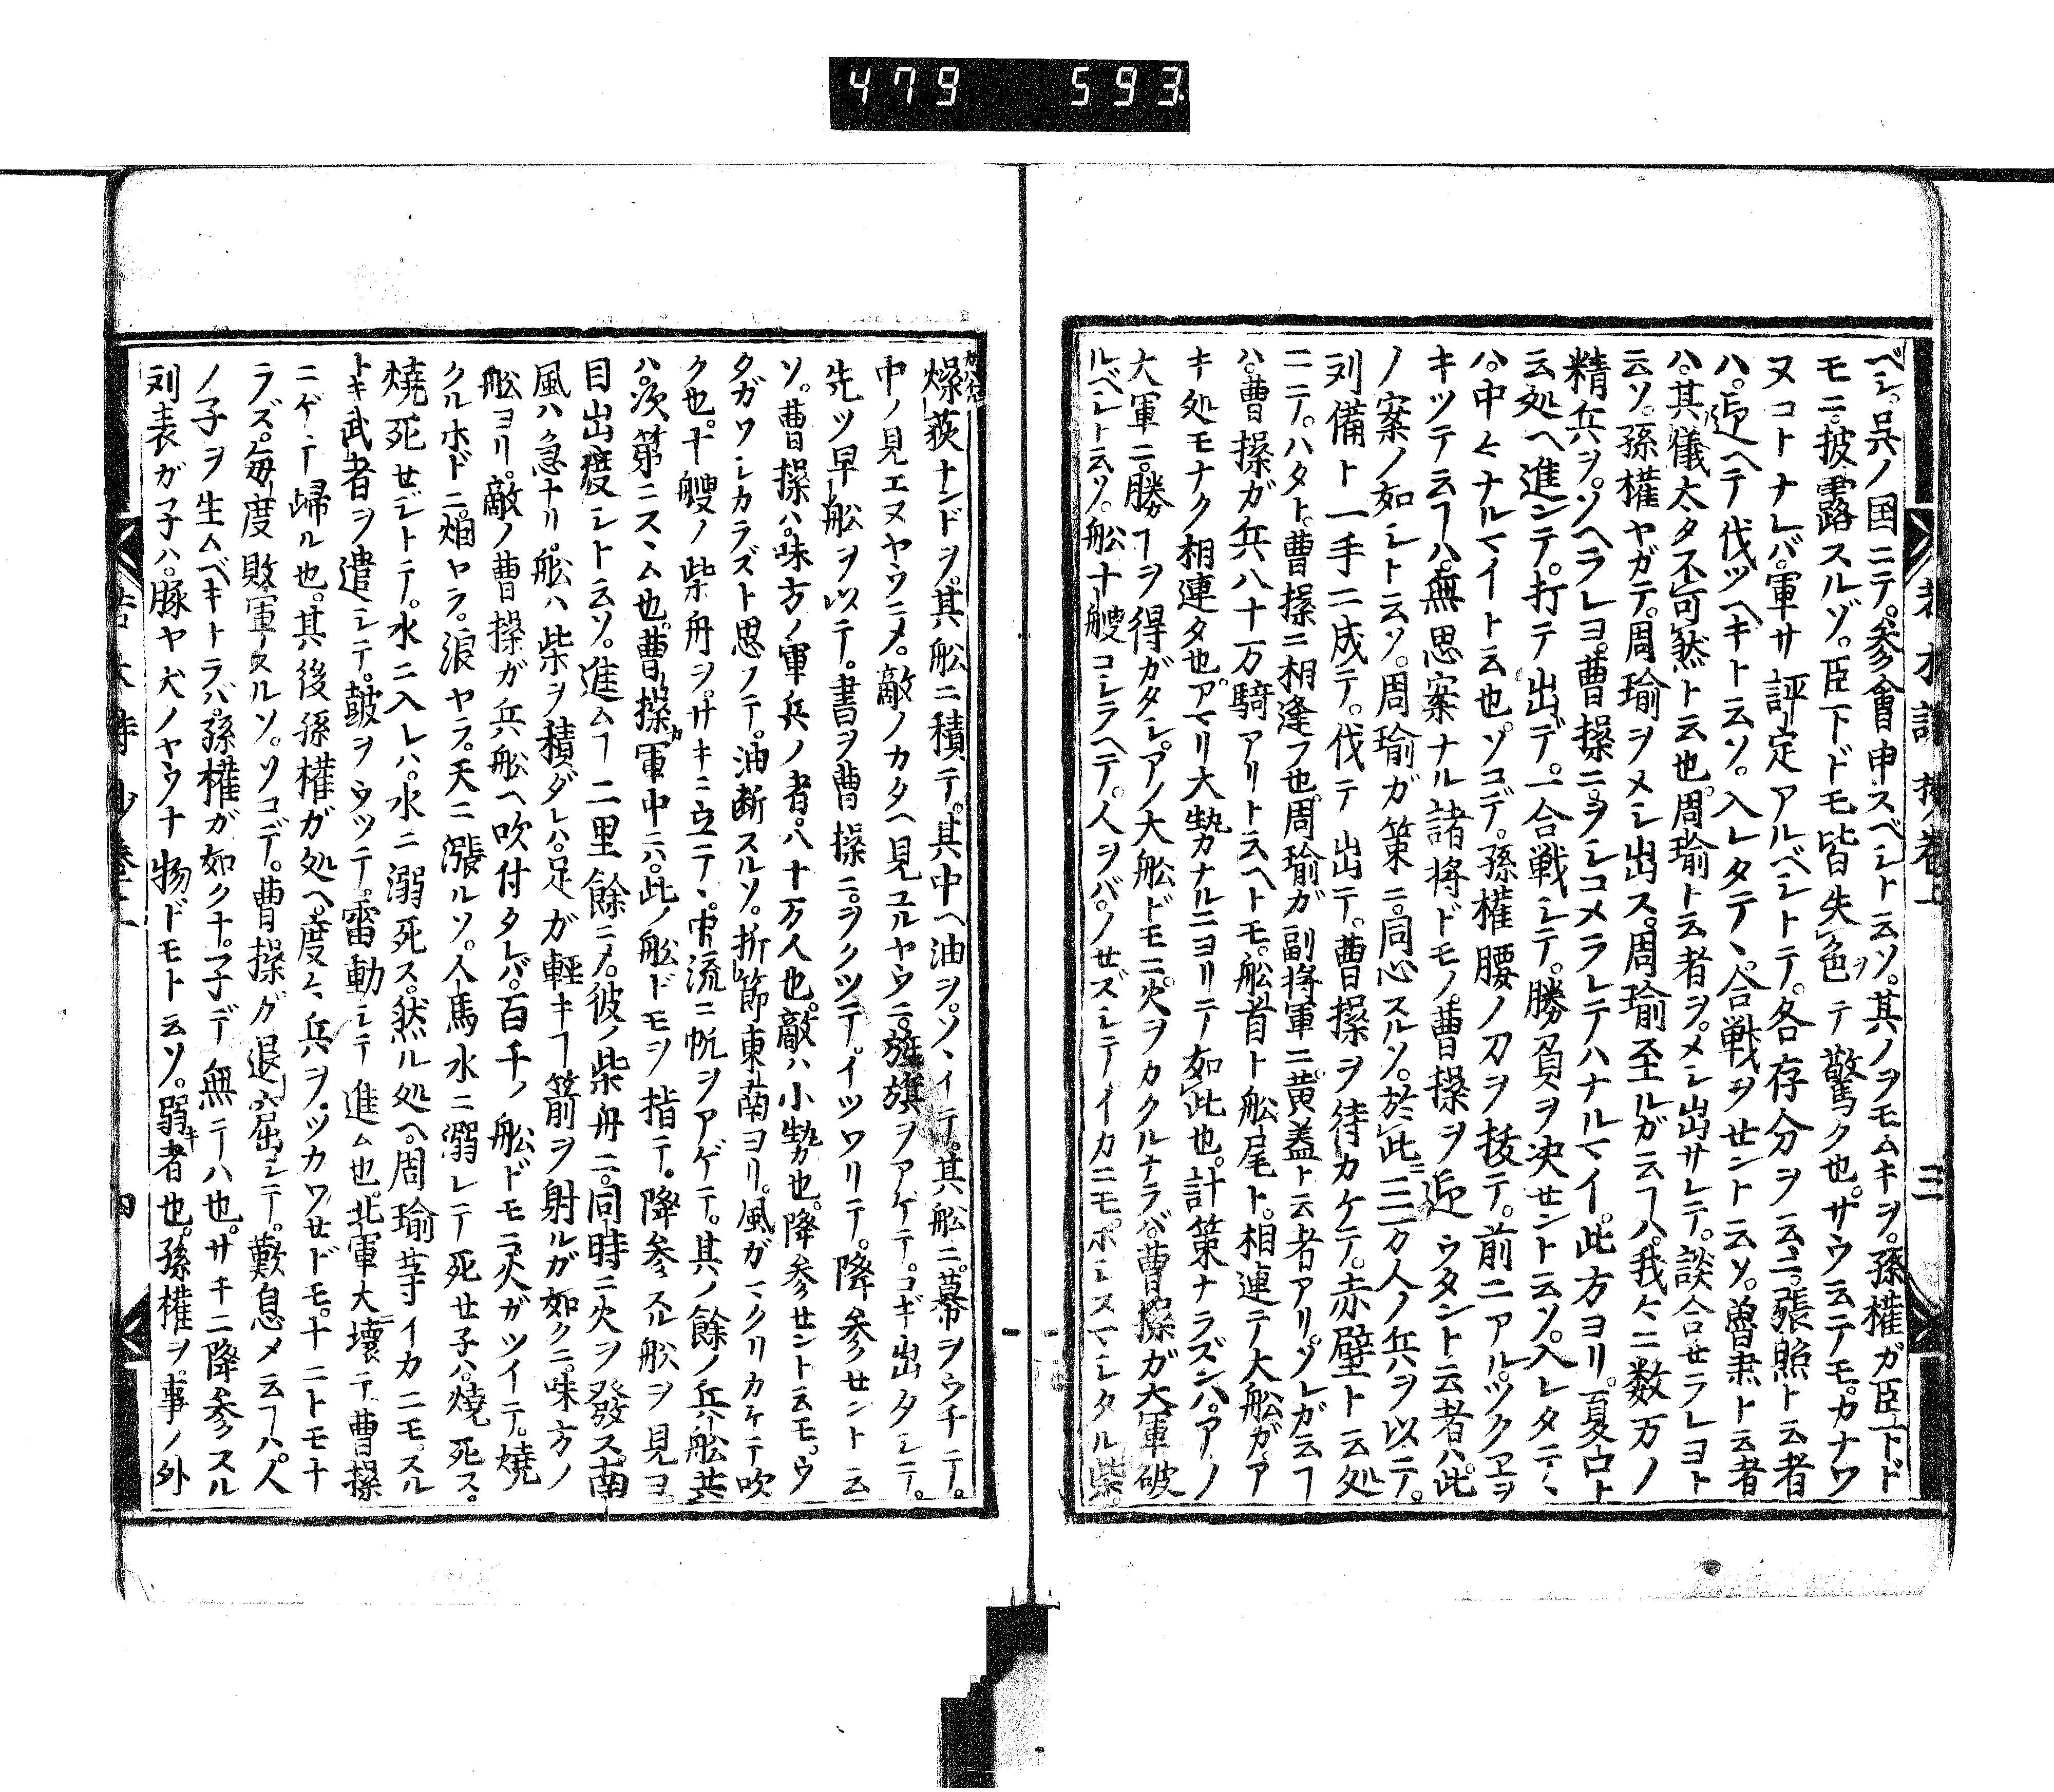 479 593
ベシ。呉ノ国ニテ。参會申スベシト云ソ。其ノヲモムキヲ。孫権ガ臣下ド
モニ。披露スルゾ。臣下ドモ皆失色ヲテ驚ク也。サウ云テモ。カナワ
ヌコトナレバ。軍サ評定アルベシトテ。各存分ヲ云ニ。張照ト云者
ハ。迎ヘテ伐ツヘキト云ソ。入レタテヽ。合戦ヲセント云ソ。魯粛ト云者
ハ。其儀太タ不可然ト云也。周瑜ト云者ヲ。メシ出サレテ。談合セラレヨト
云ソ。孫権ヤガテ。周瑜ヲメシ出ス。周瑜至ルガ云ヿハ。我々ニ数万ノ
精兵ヲ。ソヘラレヨ。曹操ニ。ヲシコメラレテハナルマイ。此方ヨリ。夏口ト
云処ヘ進ンテ。打テ出デ。一合戦シテ。勝負ヲ决セント云ソ。入レタテヽ
ハ。中々ナルマイト云也。ソコデ。孫権腰ノ刀ヲ抜テ。前ニアル。ツクヱヲ
キツテ云ヿハ。無思案ナル諸将ドモノ。曹操ヲ迎ウタント云者ハ。此
ノ案ノ如シト云ソ。周瑜ガ策ニ。同心スルソ。於此ニ三万人ノ兵ヲ以テ。
刘備ト一手ニ成テ。伐テ出テ。曹操ヲ待カケテ。赤壁ト云処
ニテ。ハタト。曹操ニ相逢フ也。周瑜ガ副将軍ニ。黄盖ト云者アリ。ソレガ云ヿ
ハ。曹操ガ兵八十万騎アリト云ヘトモ。舩首ト舩尾ト。相連テ大舩ガ。ア
キ処モナク相連タ也。アマリ大勢カナルニヨリテ如此也。計策ナラズンハ。アノ
大軍ニ。勝ヿヲ得ガタシ。アノ大舩ドモニ。火ヲカクルナラバ。曹操ガ大軍破
ルベシト云ソ。舩十艘コシラヘテ。人ヲバ。ノセズシテイカニモ。ホシスマシタル柴。
燥荻ナンドヲ。其舩ニ積テ。其中ヘ油ヲ。ソヽイテ。其舩ニ。幕ヲウチテ。
中ノ見エヌヤウニメ。敵ノカタヘ見ユルヤウニ。旌旗ヲアゲテ。コギ出タシテ。
先ツ早舩ヲ以テ。書ヲ曹操ニ。ヲクツテ。イツワリテ。降参セント云
ソ。曹操ハ。味方ノ軍兵ノ者。八十万人也。敵ハ小勢也。降参セント云モ。ウ
タガワシカラズト思ノテ。油断スルソ。折節東南ヨリ。風ガマクリカケテ吹
ク也。十艘ノ柴舟ヲ。サキニ立テヽ。中流ニ帆ヲアゲテ。其ノ餘ノ兵舩共
ハ。次第ニスヽム也。曹操カ軍中ニハ。此ノ舩ドモヲ指テ。降参スル舩ヲ見ヨ。
目出度シト云ソ。進ムヿ二里餘ニメ。彼ノ柴舟ニ。同時ニ火ヲ發ス。南
風ハ急ナリ。舩ハ柴ヲ積ダレハ。足ガ輕キヿ箭ヲ射ルガ如クニ。味方ノ
舩ヨリ。敵ノ曹操ガ兵舩ヘ吹付タレバ。百千ノ舩ドモニ火ガツイテ。燒
クルホドニ。烟ヤラ。浪ヤラ。天ニ漲ルソ。人馬水ニ溺レテ死セ子ハ。燒死ス。
燒死セジトテ。水ニ入レハ。水ニ溺死ス。然ル処ヘ。周瑜等イカニモ。スル
トキ武者ヲ遣シテ。鼓ヲウツテ。雷動シテ進ム也。北軍大ニ壞テ。曹操
ニゲテ歸ル也。其後孫権ガ処ヘ。度々兵ヲ。ツカワセドモ。ナニトモナ
ラズ。毎度敗軍スルソ。ソコデ。曹操ガ退屈シテ。歎息メ云ヿハ。人
ノ子ヲ生ムベキトラバ。孫権ガ如クナ。子デ無テハ也。サキニ降参スル
刘表ガ子ハ。豚ヤ犬ノヤウナ物ドモト云ソ。弱キ者也。孫権ヲ。事ノ外